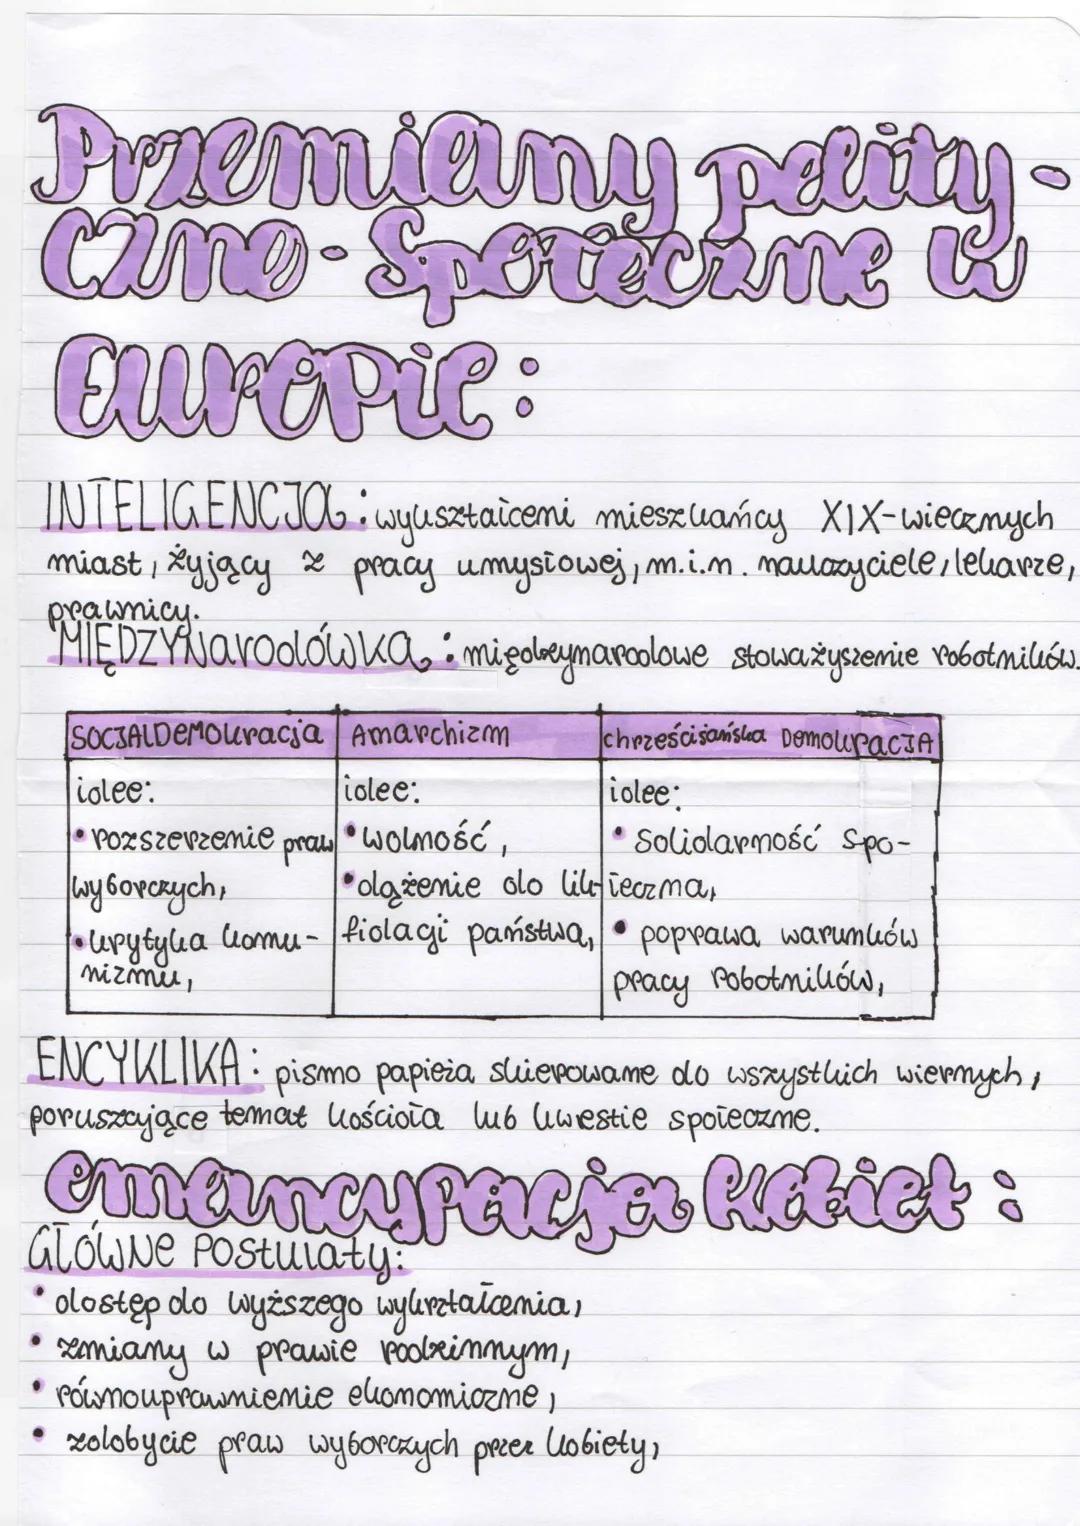 Przemiany polity-
czno-społeczne w
Europie:
INTELIGENCJA: wykształceni mieszkańcy XIX-wiecznych
miast, żyjący z pracy umysłowej, m.in. nauczyciele, lekarze,
prawnicy.
MIĘDZYNARODÓWKA: międzynarodowe stoważyszenie robotników.
SOCJALDEMOKRACJA Anarchizm chrześcijańska DemokracJA
idee: idee: idee:
• rozszerzenie praw • wolność, • Solidarność spo-
wyborczych, • dążenie do lik- łeczna,
• krytyka komu- fidacji państwa, • poprawa warunków
nizmu, pracy robotników,
ENCYKLIKA: pismo papieża skierowane do wszystkich wiernych,
poruszające temat kościoła lub kwestie społeczne.
emancypacja kobiet:
GŁÓWNE POSTULATY:
• dostęp do wyższego wykrztałcenia,
• zmiany w prawie rodzinnym,
• równouprawnienie ekonomiczne,
• zdobycie praw wyborczych przez kobiety,